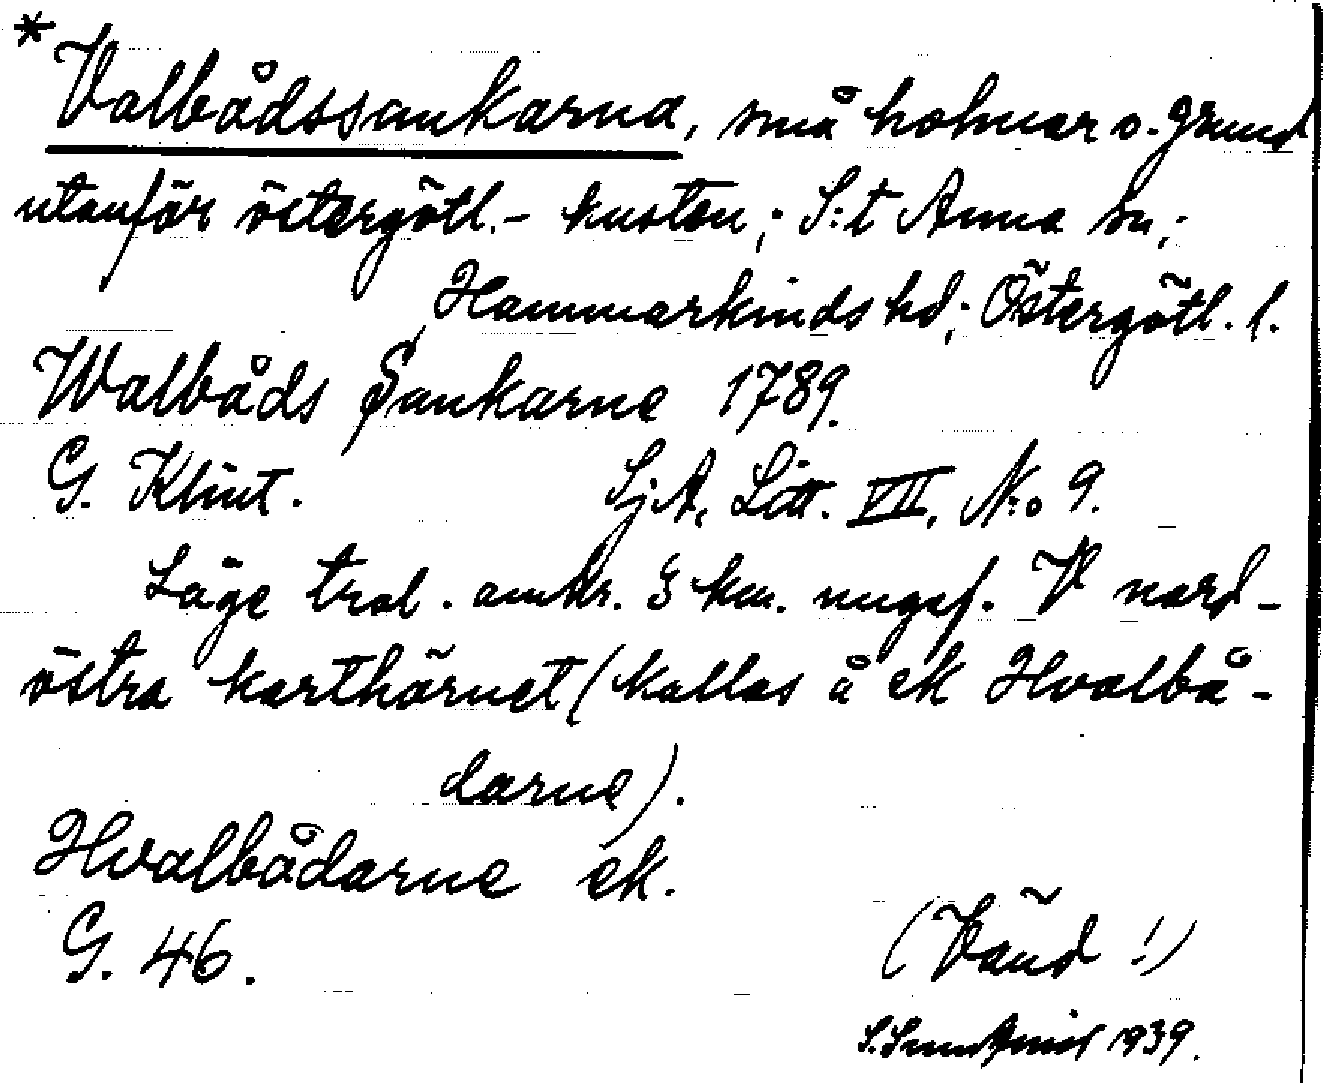 *Valbådssankarna, små holmar o. grund
utanför östergötl.- kusten; S:t Anna sn,;
Hammarkinds hd; Östergötl. l.
Walbåds Sankarne 1789.
G. Klint. Sj.A, Litt. VII, N:o 9.
Läge trol. omkr. 3 km. ungef. V nord-
östra karthörnet (kallas å ek Hvalbå-
darne).
Hvalbådarne ek.
G. 46.
(Vänd!)
1939.